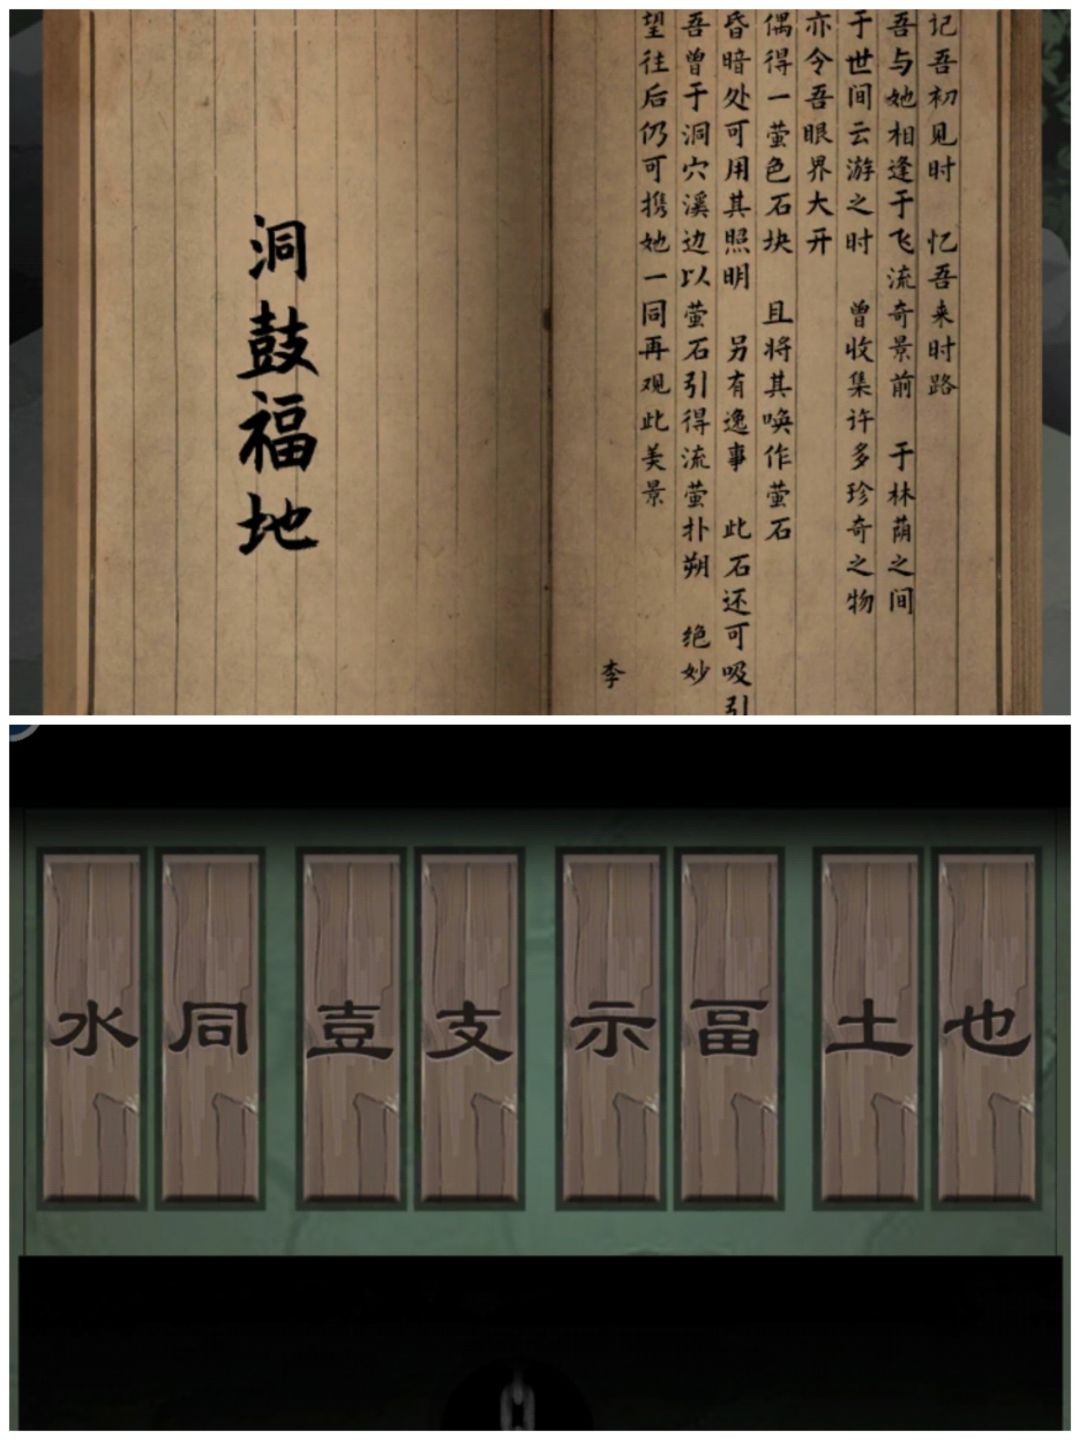 记吾初见时 忆吾来时路
吾与她相逢于飞流奇景前 于林荫之间
于世间云游之时 曾收集许多珍奇之物
亦令吾眼界大开
偶得一萤色石块 且将其唤作萤石
昏暗处可用其照明 另有逸事 此石还可吸引
吾曾于洞穴溪边以萤石引得流萤扑朔 绝妙
望往后仍可携她一同再观此美景
李
洞鼓福地
水 同 壴 支 示 畐 土 也